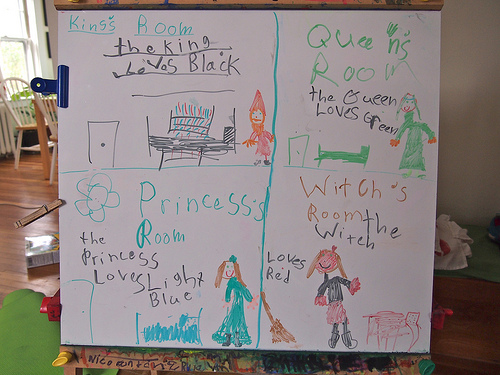 King's Room
the King
Loves Black
Queen's
Room
the Queen
Loves green
Princess's
Room
the
Princess
Loves Light
Blue
Witch's
Room the
Witch
Loves
Red